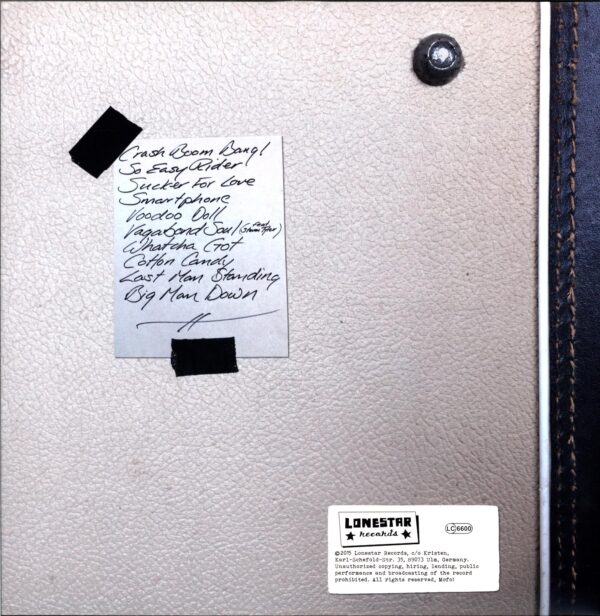 Crash Boom Bang!
So Easy Rider
Sucker For Love
Smartphone
Voodoo Doll
Vagabond Soul (feat. Steven Tyler)
Whatcha Got
Cotton Candy
Last Man Standing
Big Man Down
LONESTAR
records
LC 6600
©2015 Lonestar Records, c/o Kristen,
Karl-Schefold-Str. 35, 89073 Ulm, Germany.
Unauthorized copying, hiring, lending, public
performance and broadcasting of the record
prohibited. All rights reserved, Mofo!